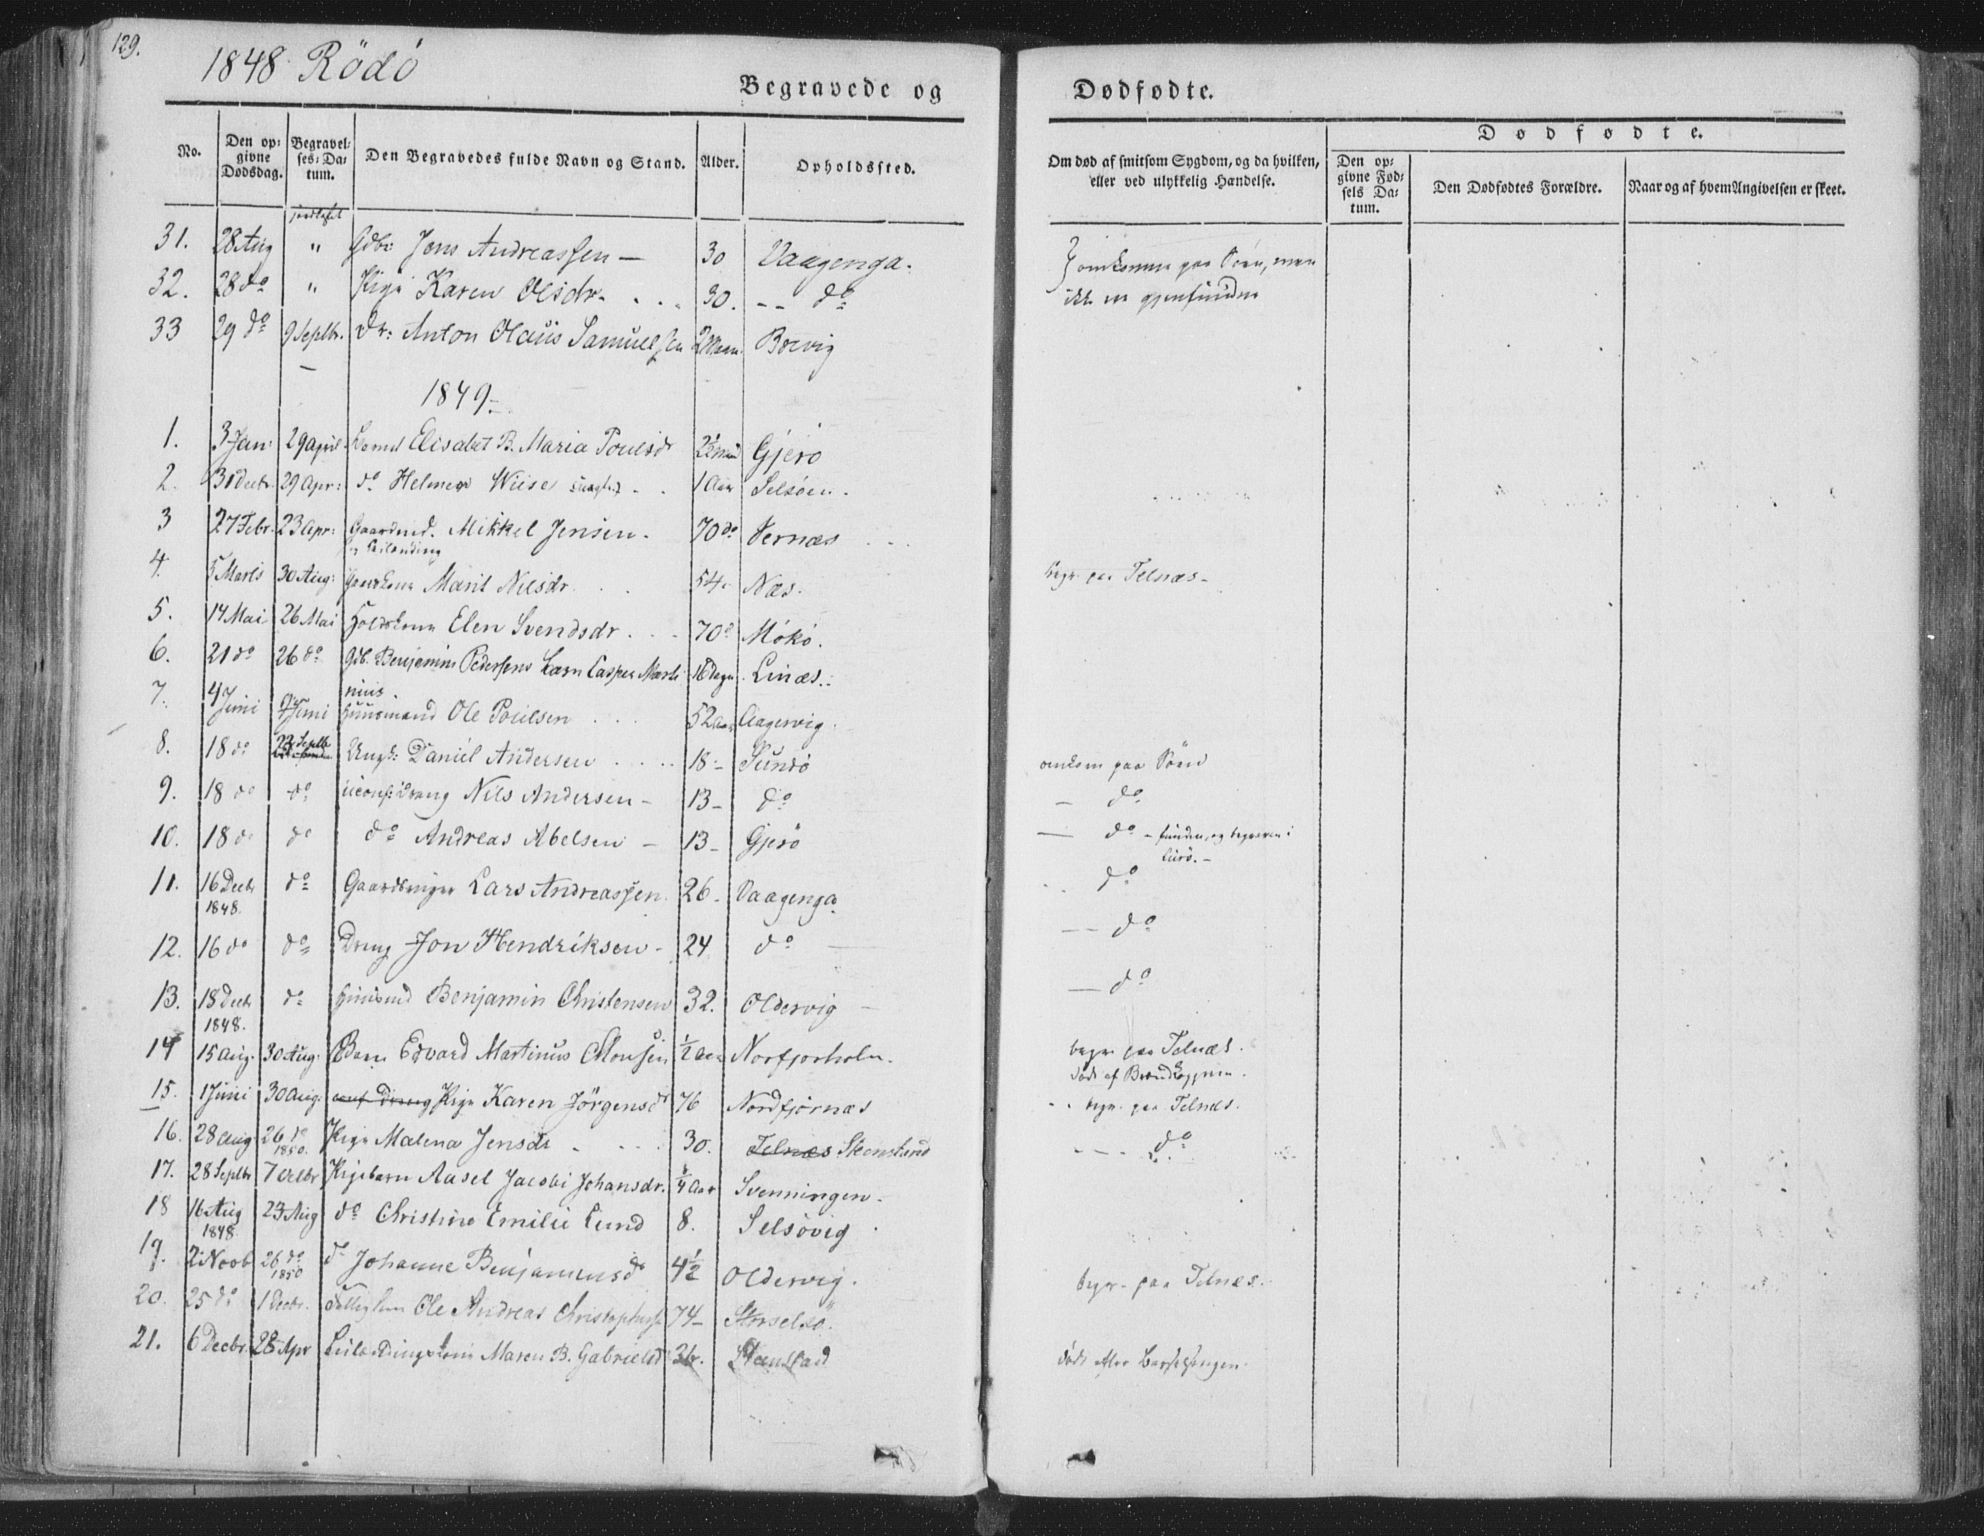 129.
1848 Rödö
Begravede og
Dødfødte.
No.
Den op-
givne
Dødsdag.
Begravel-
ses-Da-
tum.
Den Begravedes fulde Navn og Stand.
Alder.
Opholdssted.
Om død af smitsom Sygdom, og da hvilken,
eller ved ulykkelig Hændelse.
Dødfødte.
Den op-
givne Fød-
sels Da-
tum.
Den Dødfødtes Forældre.
Naar og af hvem Angivelsen er skeet.
31. 28 Aug " Gdbr: Jens Andreassen — 30 Vaagenga. omkomne paa Søen, men
32. 28 do " Pige Karen Olsdr. . . 30. -- do ikke gjenfundne
33 29 do 9 Septbr. Dr: Anton Olaus Samuelsen Borvig
1849-
1. 3 Jan: 29 april Elisabet B. Maria Poulsdr Gjerø
2. 31 Decbr. 29 Apr: do Helmer Wiise 1 Aar Selsøen.
3 27 Febr. 23 Apr: Gaardmd. Mikkel Jensen. 70 do Vernæs
4. 5 Marts 30 Aug: Marit Nilsdr. 54. Næs. begr. paa Telnæs-
5. 14 Mai 26 Mai Elen Svendsdr . . 70 Møkø.
6. 21 do 26 do Gdb. Benjamin Pedersens Barn Casper Marti 16 Dage Linæs.
nius.
7. 4 Juni Juni Huusmand Ole Poulsen . . . 52 Aar Aagervig.
8. 18 do 23 Septbr Ungk: Daniel Andersen . . . 18- Sundø omkom paa Søen
9. 18 do do uconf: Dreng Nils Andersen - 13- do — do
10. 18 do do do Andreas Abelsen — 13- Gjerø — do - funden og begraven i
Lurø.-
11. 16 Decbr do Gaardbruger Lars Andreassen. 26- Vaagenga do
1848.
12. 16 do do Dreng Jon Hendriksen- 24 do — do
13. 18 Decbr do Huusmd Benjamin Christensen 32. Oldervig — do
1848.
14 15 Aug. 30 Aug. Barn Edvard Martinus Monsen 1/2 Aar Norfjorholn. begr. paa Telnæs.
døde af
15. 1 Juni 30 Aug. Pige Karen Jörgensdr 76 Nordfjornæs begr. paa Telnæs.
16. 28 Aug 26 do Pige Malena Jensdr . . . 30. Telnæs Stenslund do
1850.
17. 28 Septbr 7 Octbr Pigebarn Aasel Jacobi Johansdr. Aar Svenningen.
18 16 Aug 23 Aug do Christine Emilie Lund 8. Selsøvig
1848
19. 2 Novb 26 do do Johanne Benjaminsdr 4 1/2 Oldervig. begr. paa Telnæs.
1850
20. 25 do 1 Decbr. Ole Andreas Christophers 74- Storselsø.
21. 6 Decbr 28 Apr Maren B. Gabrielsdr 36. Stenslad døde efter Barselsengen.